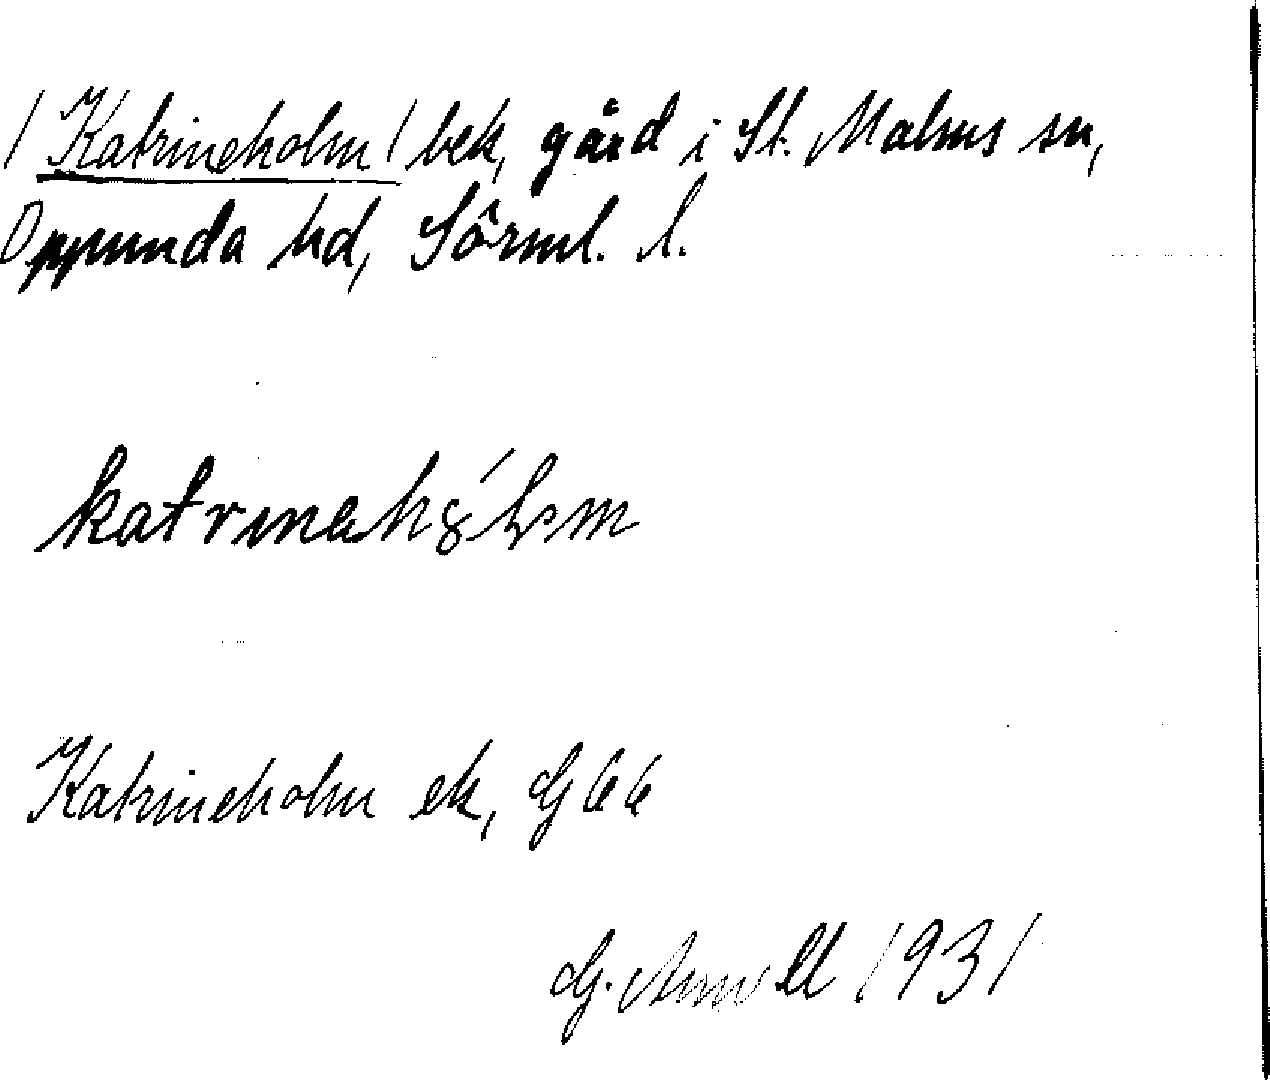 / Katrineholm / bek, gård i St. Malms sn,
Oppunda hd, Sörml. l.
katrinəhȣ́lm
Katrineholm ek, G 66
G. Arwill 1931